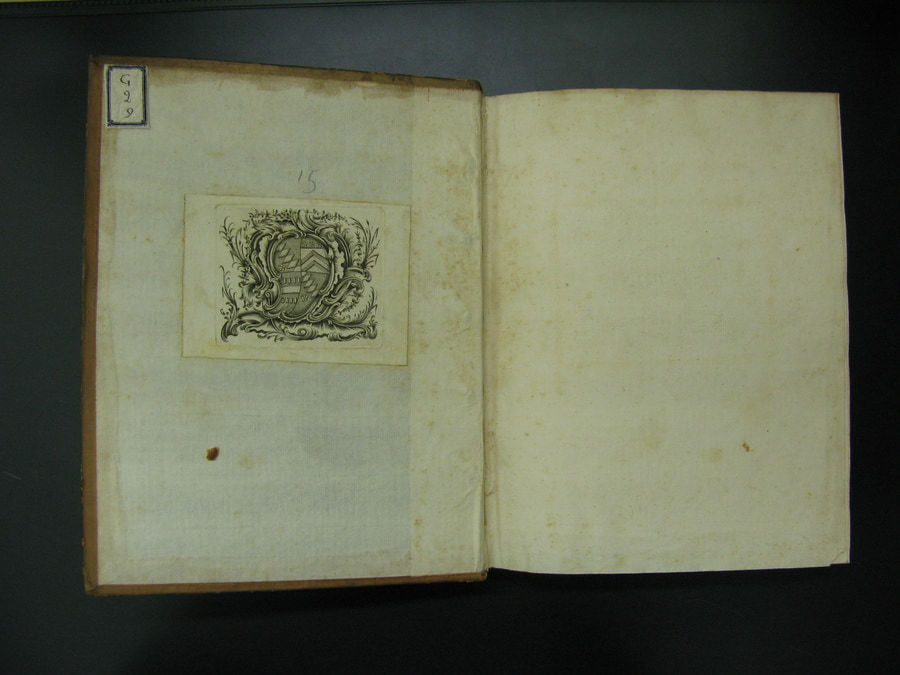 G
2
9
15